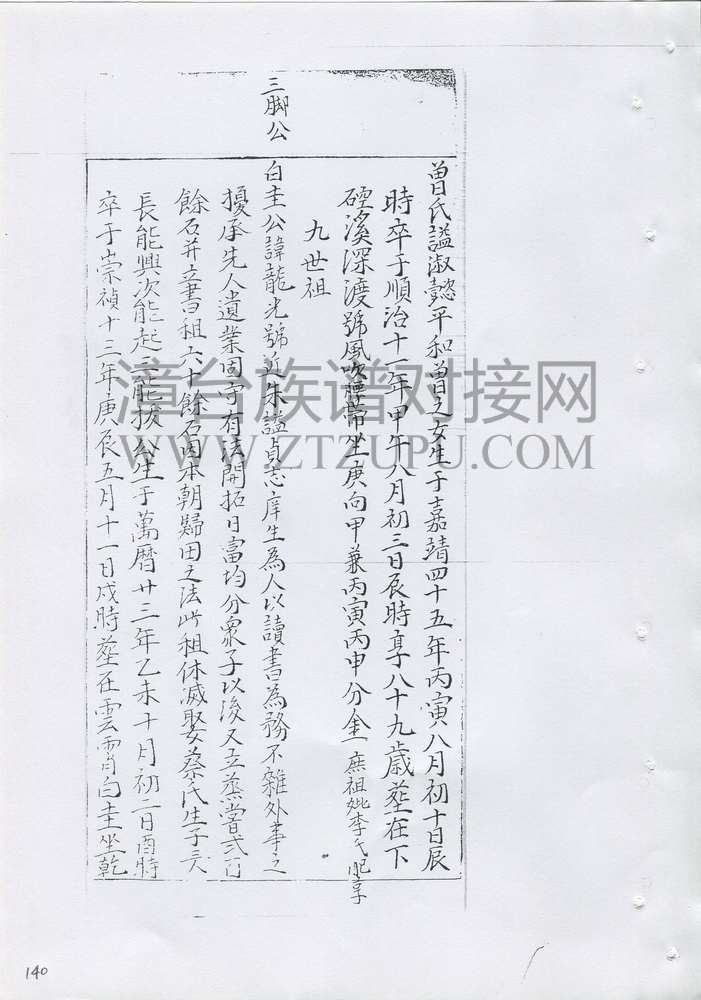 三脚公
曾氏謚淑懿平和曾之女生于嘉靖四十五年丙寅八月初十日辰
時卒于順治十一年甲午八月初三日辰時享八十九歲塟在下
硿溪深渡號風吹腰帶坐庚向甲兼丙寅丙申分金庶祖妣李氏配享
九世祖
白圭公諱龍光號近朱謚貞志庠生為人以讀書為務不雜外事之
擾承先人遺業固守有法開拓日富均分衆子以後又立蒸嘗弍百
餘石并立書租六十餘石因本朝歸田之法此租休滅娶蔡氏生子三人
長能興次能起三能拔公生于萬曆廿三年乙未十月初二日酉時
卒于崇禎十三年庚辰五月十一日戌時塟在雲霄白圭坐乾
漳台族谱对接网
WWW.ZTZUPU.COM
140